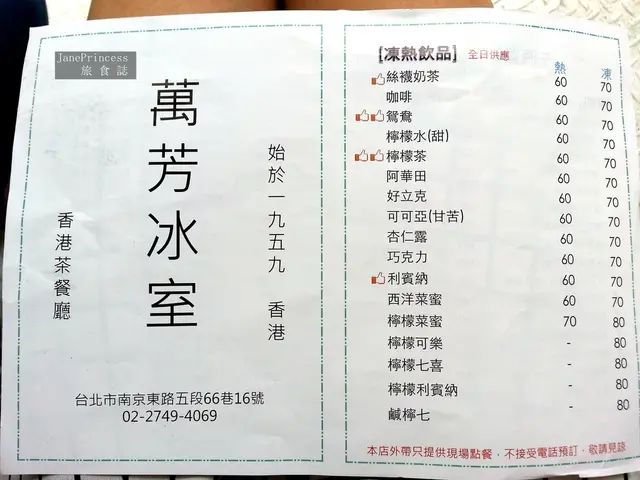 JanePrincess
旅食誌
萬芳冰室
始於一九五九 香港
香港茶餐廳
台北市南京東路五段66巷16號
02-2749-4069
[凍熱飲品] 全日供應
熱 凍
絲襪奶茶 60 70
咖啡 60 70
鴛鴦 60 70
檸檬水(甜) 60 70
檸檬茶 60 70
阿華田 60 70
好立克 60 70
可可亞(甘苦) 60 70
杏仁露 60 70
巧克力 60 70
利賓納 60 70
西洋菜蜜 60 70
檸檬菜蜜 70 80
檸檬可樂 - 80
檸檬七喜 - 80
檸檬利賓納 - 80
鹹檸七 - 80
本店外帶只提供現場點餐，不接受電話預訂，敬請見諒